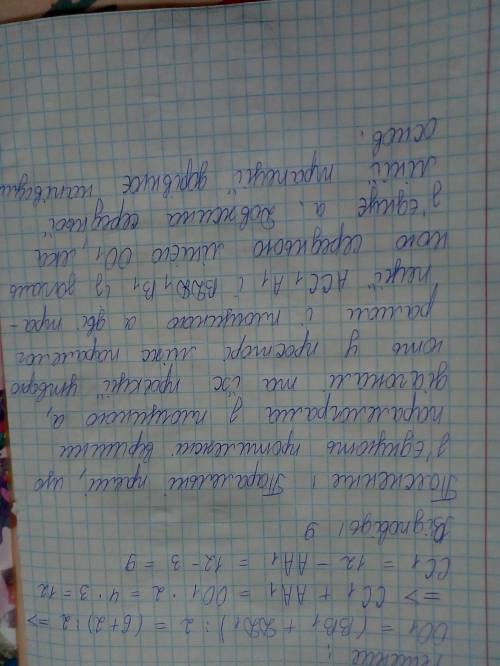 Рішення:
OO₁ = (BB₁ + DD₁) : 2 = (6+2) : 2 =>
=> CC₁ + AA₁ = OO₁ · 2 = 4 · 3 = 12
CC₁ = 12 - AA₁ = 12 - 3 = 9
Відповідь: 9
Пояснення: Паралельні прямі, що
з'єднують протилежні вершини
паралелограма з площиною а,
діагоналі та їх проєкції утворю
ють у просторі між паралелог
рамом і площиною а дві тра-
пеції ACC₁A₁ і BDD₁B₁ із загаль
ною середньою лінією OO₁, яка
з'єднує а. Довжина середньої
лінії трапеції дорівнює напівсумі
основ.